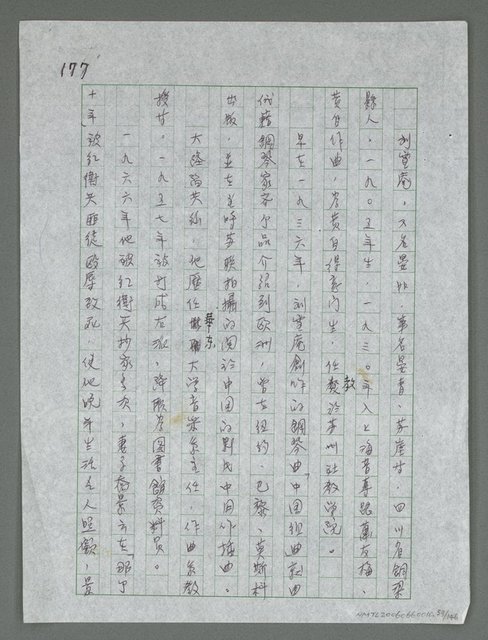 177
劉雪庵，又名晏如，筆名晏青、蘇崖等。四川省銅梁
縣人，一九〇五年生，一九三〇年入上海音專跟蕭友梅、
黃自作曲，為黃自得意門生，任教於蘇州社教學院。
早在一九三六年，劉雪庵創作的鋼琴曲「中國組曲」就由
俄籍鋼琴家齊爾品介紹到歐洲，曾在紐約、巴黎、莫斯科
出版，並在當時蘇聯拍攝的關於中國的影片中用作插曲。
大陸陷共後，他歷任華東大學音樂系主任，作曲系教
授等。一九五七年被打成右派，降職為圖書館資料員。
一九六六年他被紅衛兵抄家多次，妻子喬景云在「那個
十年被紅衛兵匪徒毆辱致死，使他晚年生活乏人照顧，最
NMTL20060660010 58/146